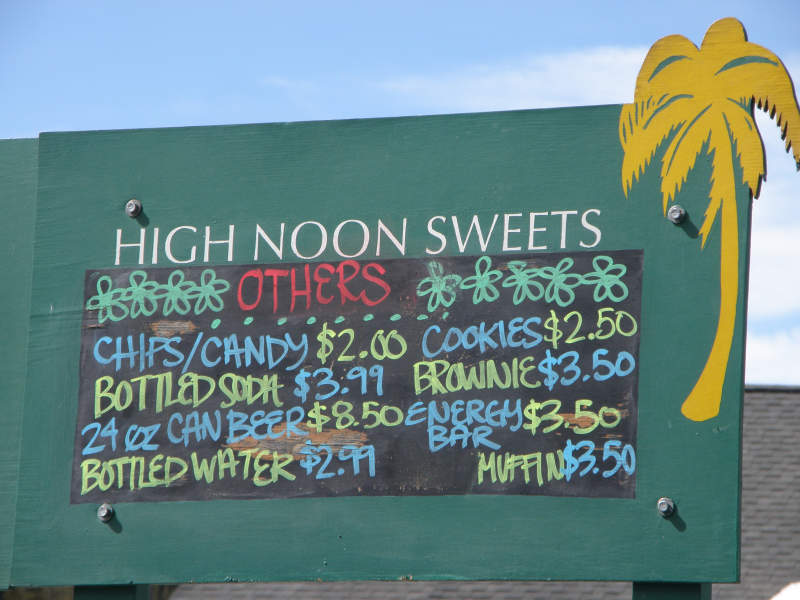 HIGH NOON SWEETS
OTHERS
CHIPS/CANDY $2.00
BOTTLED SODA $3.99
24 oz CAN BEER $8.50
BOTTLED WATER $2.99
COOKIES $2.50
BROWNIE $3.50
ENERGY $3.50
BAR
MUFFIN $3.50